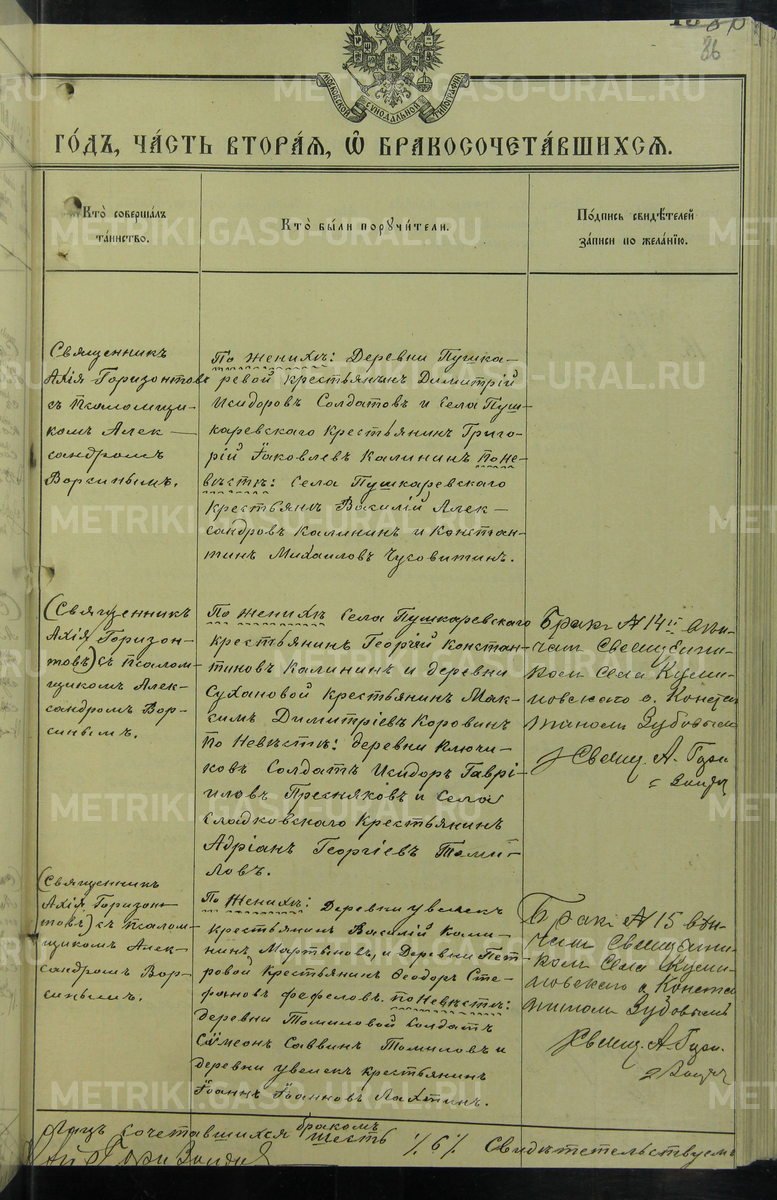 86
МОСКОВСКОЙ СѴНОДАЛЬНОЙ ТИПОГРАФІИ
ГО́ДЪ, ЧА́СТЬ ВТОРА́Я, Ѽ БРАКОСОЧЕТА́ВШИХСЯ.
Кто̀ соверша́лъ
та́инство.
Кто̀ бы́ли порꙋчи́тели.
По́дпись свидѣ́телей
за́писи по жела́нїю.
Священникъ
Ахія Горизонтовъ
съ псаломщи-
комъ Алек-
сандромъ
Ворсинымъ.
По женихѣ: Деревни Пушка-
ревой крестьянинъ Димитрій
Исидоровъ Солдатовъ и села Пуш-
каревскаго Крестьянинъ Григо-
рій Іаковлевъ Калининъ по не-
вѣстѣ: села Пушкаревскаго
Крестьянъ Василій Алек-
сандровъ Калининъ и Констан-
тинъ Михаиловъ Чусовитинъ.
(Священникъ
Ахія Горизон-
товъ) съ псалом-
щикомъ Алек-
сандромъ Вор-
синымъ.
По женихѣ села Пушкаревскаго
крестьянинъ Георгій Констан-
тиновъ Калининъ и деревни
Сухановой крестьянинъ Мак-
симъ Димитріевъ Коровинъ
по невѣстѣ: деревни Ключи-
ковъ Солдатъ Исидоръ Гаврі-
иловъ Пресняковъ и села
Сладковскаго Крестьянинъ
Адріанъ Георгіевъ Томи-
ловъ.
Бракъ №14й вѣн-
чалъ Священни-
комъ села
о. Конста
нтиномъ Зубовымъ
Свящ. А. Гори
зонтов
(Священникъ
Ахія Горизон-
товъ) съ псалом-
щикомъ Алек-
сандромъ Вор-
синымъ.
По женихѣ: Деревни Увелкъ
крестьянинъ Василій Кали-
нинъ Мартыновъ, и Деревни Пет-
ровой Крестьянинъ Ѳеодоръ Сте-
фановъ Фефеловъ. по невѣстѣ:
деревни Томиловой Солдатъ
Сѵмеонъ Саввинъ Томиловъ и
деревни Увелкъ крестьянинъ
Іоаннъ Іоанновъ Лахтинъ.
Бракъ №15 вѣн-
чалъ Священни-
комъ Села
о. Конста
нтиномъ Зубовымъ
Свящ. А. Гори-
зонтов
Лицъ сочетавшихся бракомъ шесть %6% Свидѣтельствуемъ
METRIKI.GASO-URAL.RU